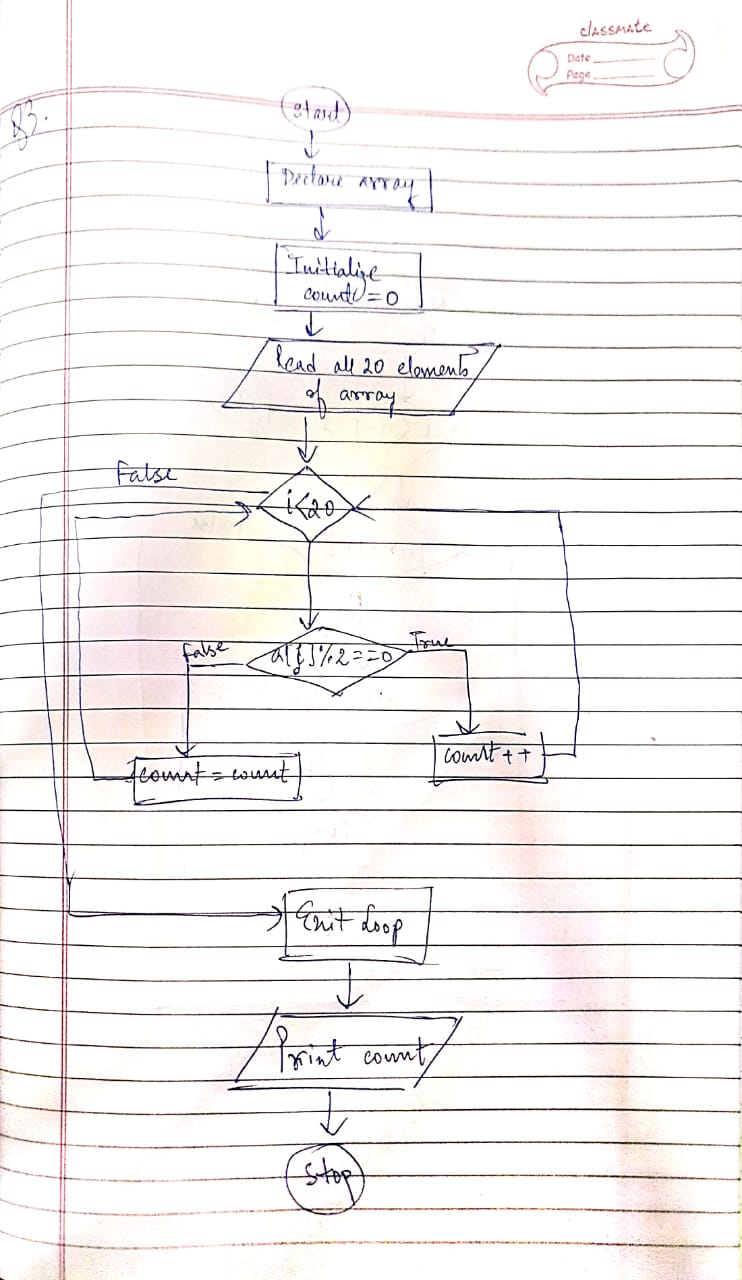 classmate
Date
Page
Q3.
Start
Declare array
Initialize
count = 0
Read all 20 elements
of array
False
i<20
False
a[i]%2==0
True
count = count
count++
Exit Loop
Print count
Stop